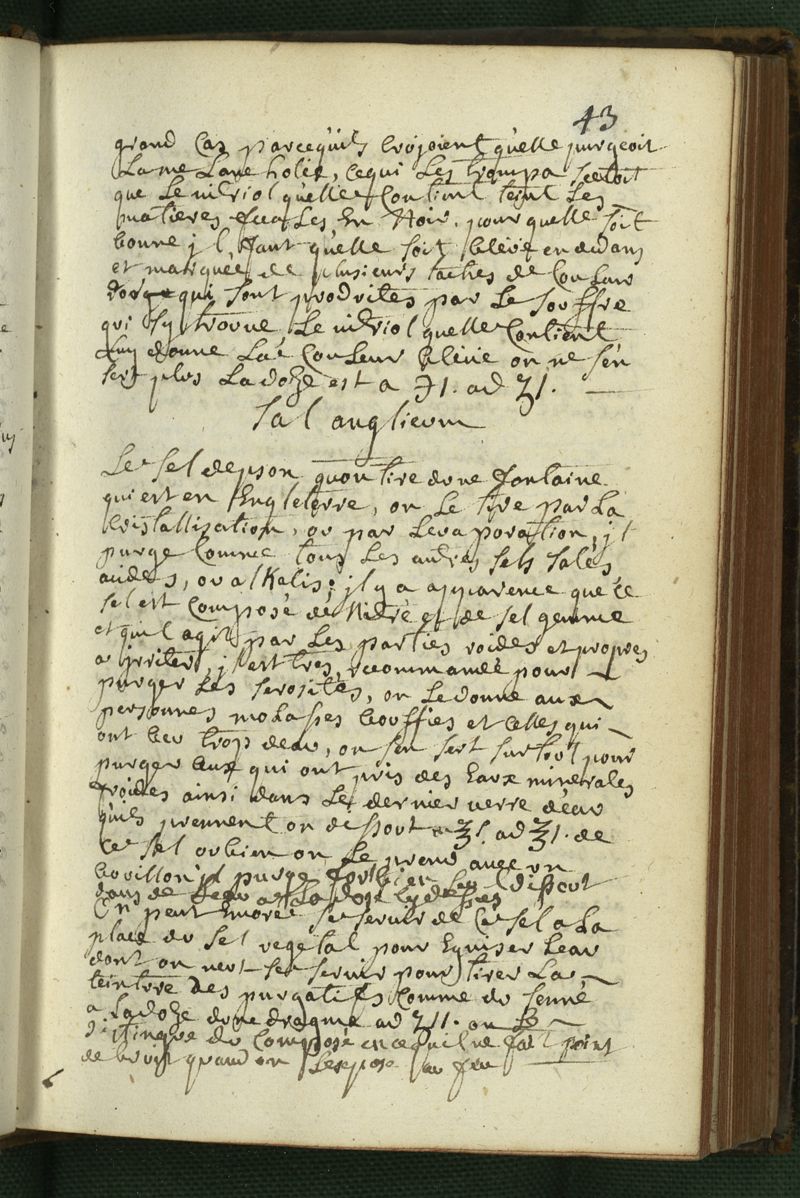 43
grand Cas parcequils Croyoient quelle purgeoit
La me Lancholie, Cequi Les trompa sestoit
que Le vitriol quelle Contient teint Les
matieres fecales En Noir. pour quelle soit
bonne jl faut quelle soit bleüe en dedans
et marquée de plusieurs taches de Couleur
dor qui sont produites par Le souffre
qui sy trouve Le vitriol quelle Contient
Luy donne La Couleur bleüe on ne sen
sert plus La doze est a ℈1. ad ʒ1.
Sal anglicum
Le sel depson quon tire dune fontaine
qui est en Engleterre, on Le tire par La
Cristallization, ou par Levaporation, jl
purge Comme tous Les autres sels salés,
acides, ou alKalis; jl y a apparence que Ce
sel est Composé de Nitre et de sel gemme
et quil agit par Les parties roides et propres
a jrriter, jl est tres recommandé pour
purger Les serosités, on Le donne aux
personnes molasses bouffies et Celles qui
ont beu trop deau, on sen sert surtout pour
purger Ceux qui ont pris des Eaux minerales
froides ainsi dans Le dernier verre deau
quils prennent on dissout ad ʒ1. de
Ce sel ou bien on Le prend avec un
bouillon jl purge fort bien dissout
dans de Leau La dose
On peut Encore se servir de Ce sel a La
place du sel vegetal pour Eguiser Leau
dont on veut se servir pour tirer La
teinture des purgatifs Comme du senné
a La doze dune dragme ad ʒ11. on Le
distingue du Composé en cequil ne fait point
de bruit quand on Lexpose au feu